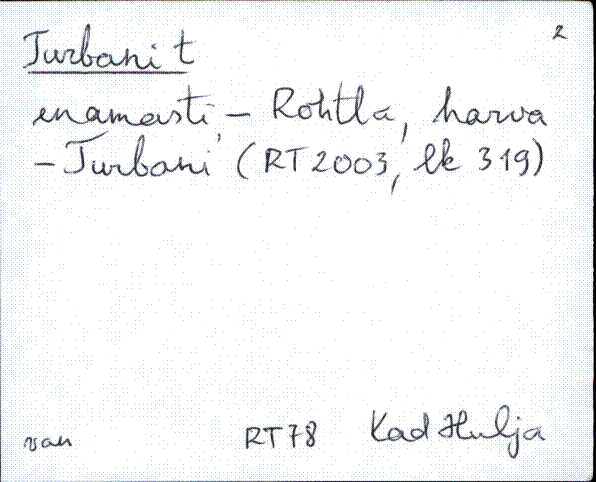 2
Turbani t
enamasti – Rohtla, harva
– Turbani (RT 2003, lk 319)
van RT78 Kad Hulja